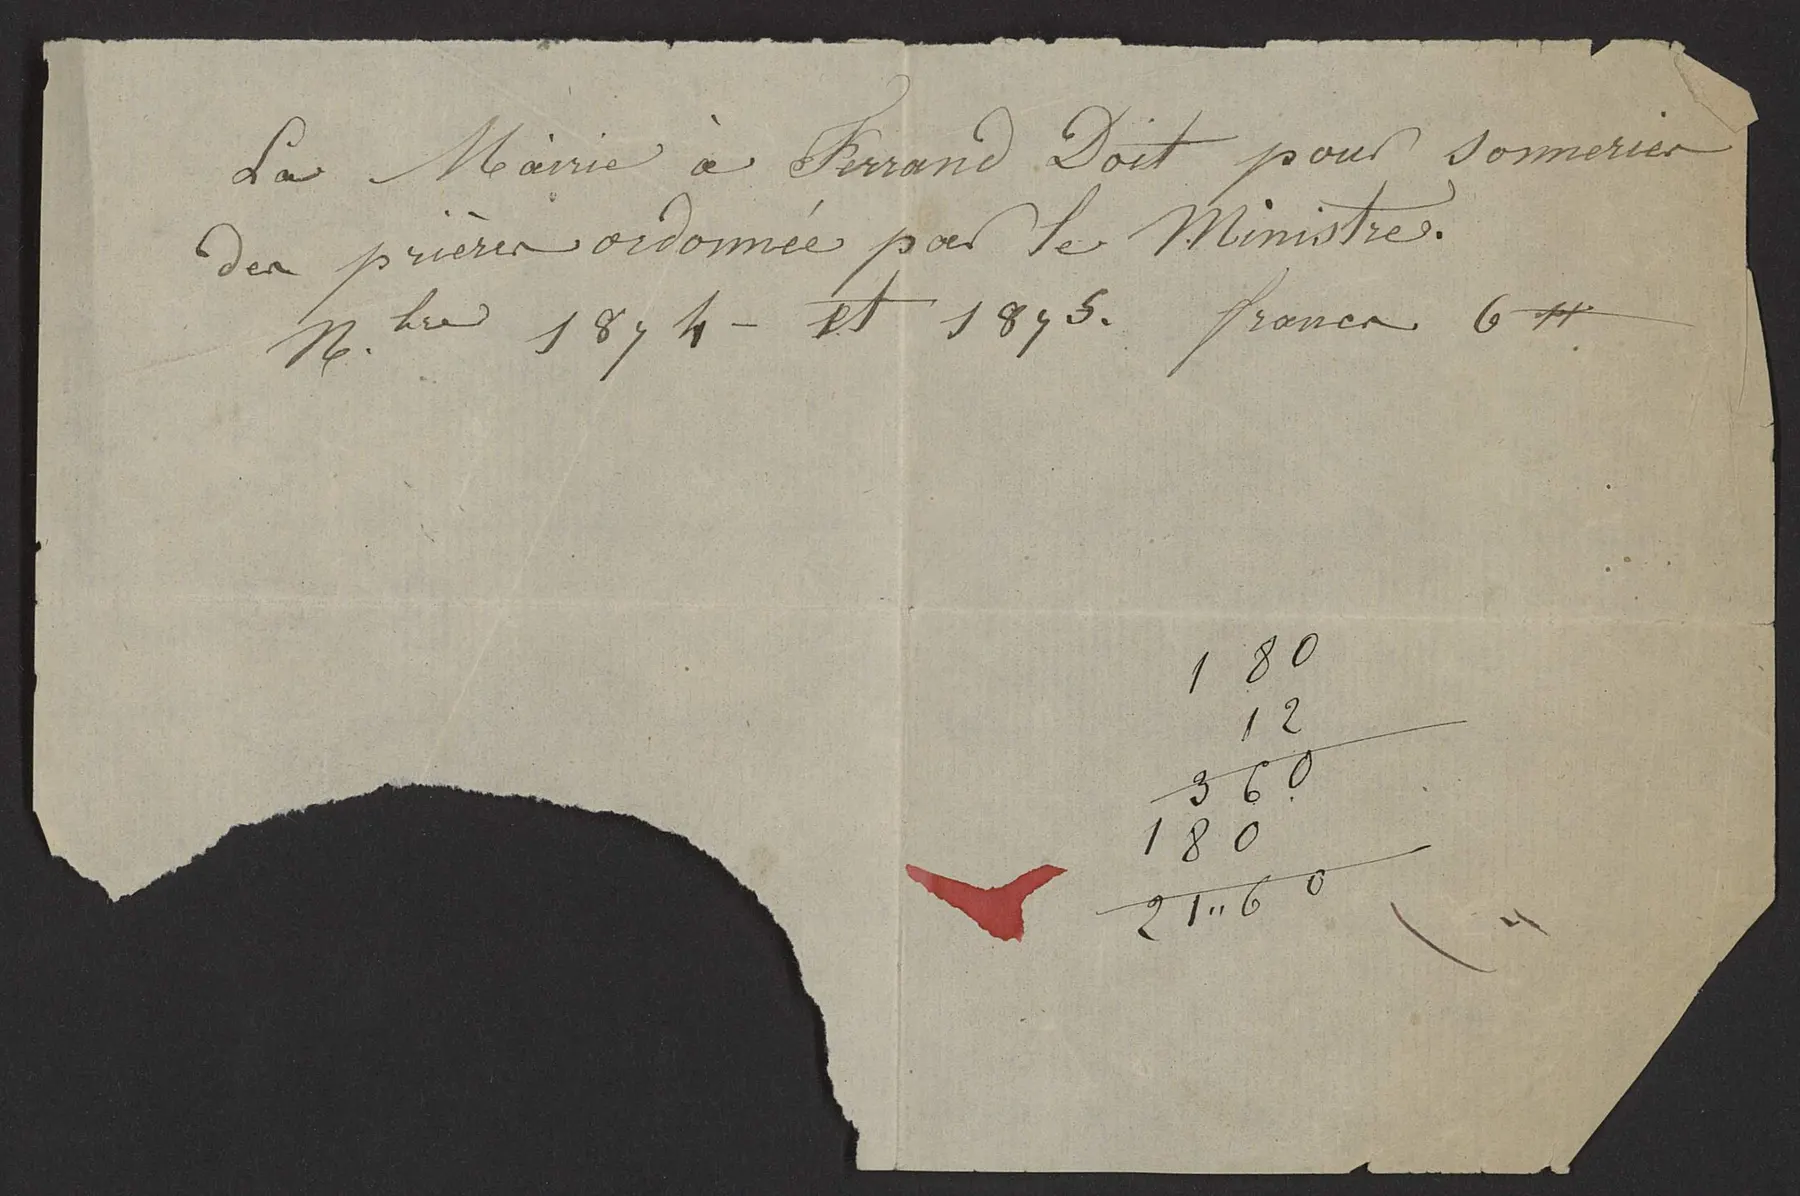 La Mairie à Ferrand Doit pour sonneries
des prières ordonnée par le Ministre.
N.bre 1874 - et 1875. francs 6 "
1 80
12
3 60
18 0
21"60